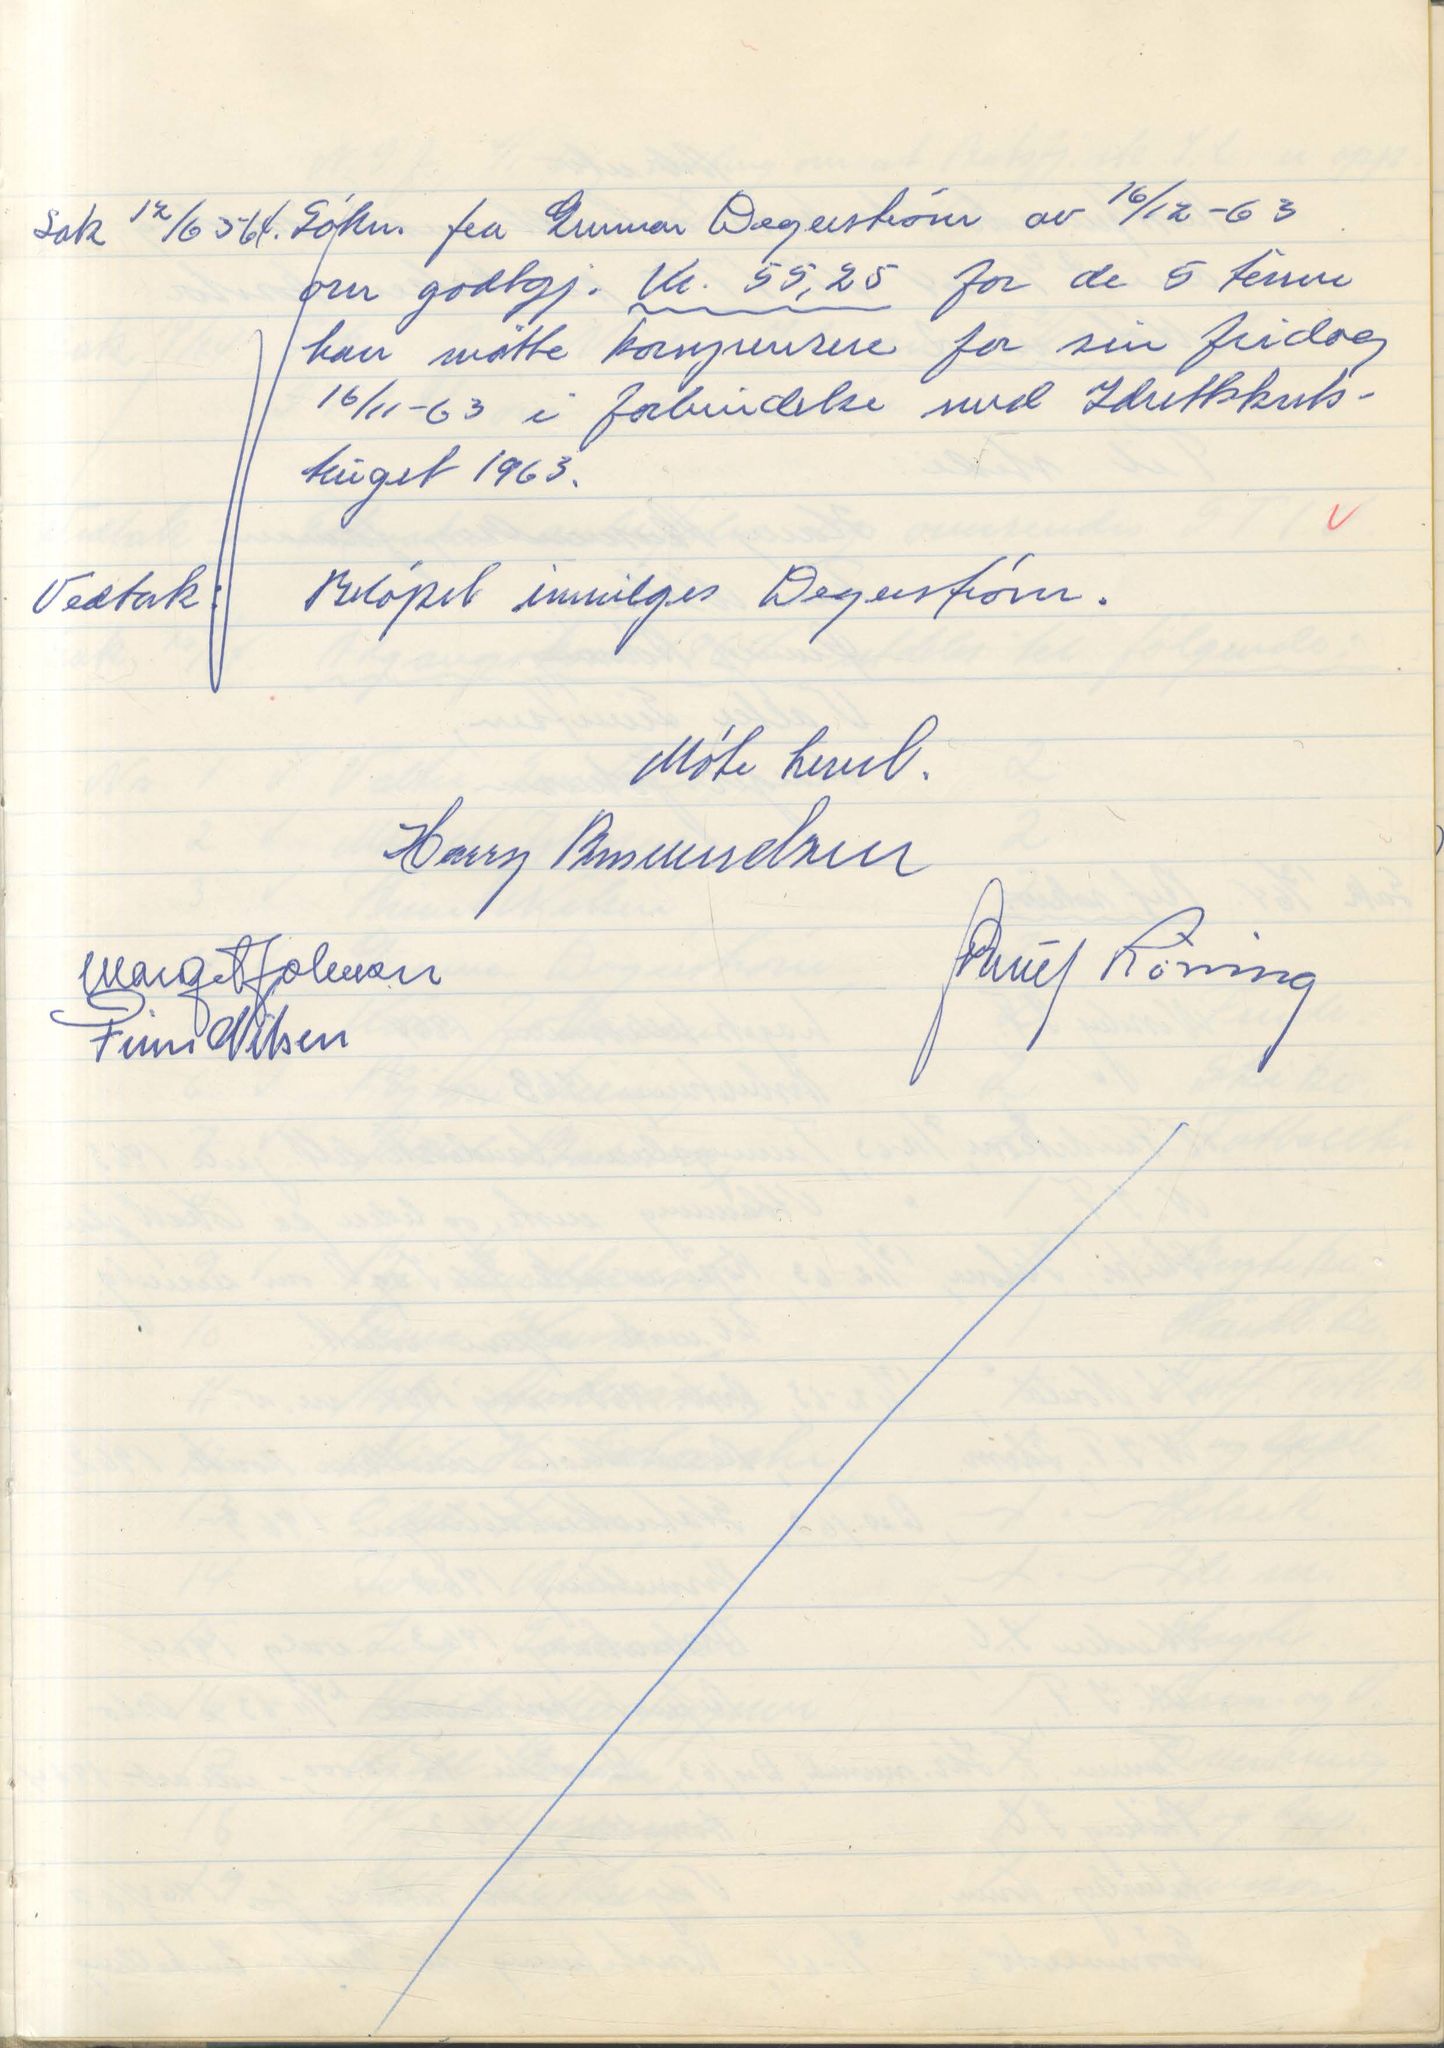 Sak 12/63-64. Søkn. fra Gunnar Degerstrøm av 16/12-63
om godtgj. Kr. 55,25 for de 5 timene
han måtte kompensere for sin fridag
16/11-63 i forbindelse med Idrettskrets-
tinget 1963.
Vedtak: Beløpet innvilges Degerstrøm.
Møte hevet.
Harry Amundsen
Margit Johnsen
Røning
Finn Nilsen